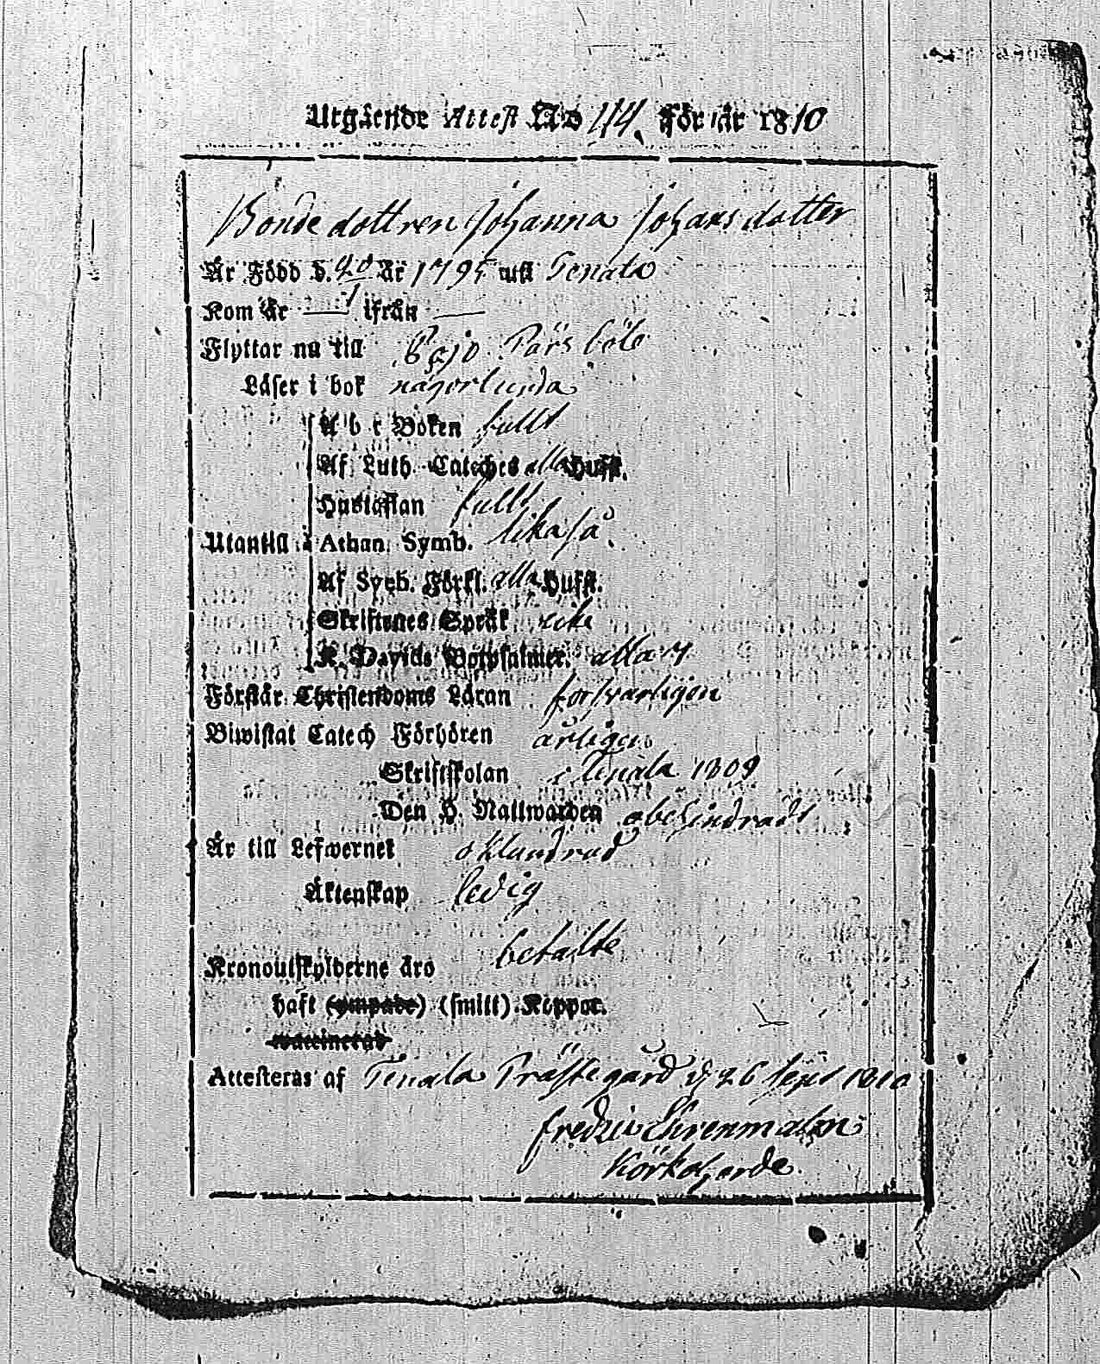 Utgående Attest No 44. för år 1810
Bonde dottren Johanna Johans dotter
År Född d. år 1795 uti Tenala
Kom år — ifrån —
Flyttar nu till Pojo Pärsböle
Läser i bok någorlunda
A b c Boken fullt
Af Luth. Cateches alla Hufst.
Hustaflan fullt
Utantill Athan. Symb. lika så.
Af Sveb. Förkl. alla Hufst.
Skriftenes Språk icke
K. Davids Botpsalmer. alla 7
Förstår Christendoms Läran försvarligen
Biwistat Catech Förhören årligen
Skriftskolan i Tenala 1809
Den H. Nattwarden obehindradt
År till Lefwernet oklandrad
Äktenskap ledig
Kronoutskylderne äro betalte
haft (ympade) (smitt) Koppor.
waccinerad
Attesteras af Tenala Prästegård d. 26 Sept 1810
Fredric Ehrenmalm
Körkoherde